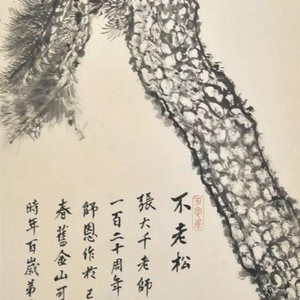 不老松
張大千老師
一百二十周年
師恩作於己
春舊金山可
時年百歲弟